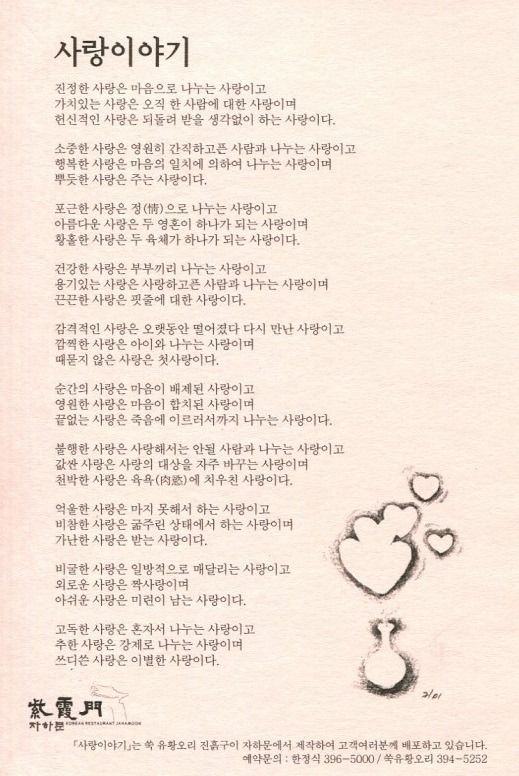 사랑이야기
진정한 사랑은 마음으로 나누는 사랑이고
가치있는 사랑은 오직 한 사람에 대한 사랑이며
헌신적인 사랑은 되돌려 받을 생각없이 하는 사랑이다.
소중한 사랑은 영원히 간직하고픈 사람과 나누는 사랑이고
행복한 사랑은 마음의 일치에 의하여 나누는 사랑이며
뿌듯한 사랑은 주는 사랑이다.
포근한 사랑은 정(情)으로 나누는 사랑이고
아름다운 사랑은 두 영혼이 하나가 되는 사랑이며
황홀한 사랑은 두 육체가 하나가 되는 사랑이다.
건강한 사랑은 부부끼리 나누는 사랑이고
용기있는 사랑은 사랑하고픈 사람과 나누는 사랑이며
끈끈한 사랑은 핏줄에 대한 사랑이다.
감격적인 사랑은 오랫동안 떨어졌다 다시 만난 사랑이고
깜찍한 사랑은 아이와 나누는 사랑이며
때묻지 않은 사랑은 첫사랑이다.
순간의 사랑은 마음이 배제된 사랑이고
영원한 사랑은 마음이 합치된 사랑이며
끝없는 사랑은 죽음에 이르러서까지 나누는 사랑이다.
불행한 사랑은 사랑해서는 안될 사람과 나누는 사랑이고
값싼 사랑은 사랑의 대상을 자주 바꾸는 사랑이며
천박한 사랑은 육욕(肉慾)에 치우친 사랑이다.
억울한 사랑은 마지 못해서 하는 사랑이고
비참한 사랑은 굶주린 상태에서 하는 사랑이며
가난한 사랑은 받는 사랑이다.
비굴한 사랑은 일방적으로 매달리는 사랑이고
외로운 사랑은 짝사랑이며
아쉬운 사랑은 미련이 남는 사랑이다.
고독한 사랑은 혼자서 나누는 사랑이고
추한 사랑은 강제로 나누는 사랑이며
쓰디쓴 사랑은 이별한 사랑이다.
紫霞門
자하문 KOREAN RESTAURANT JAHAMOON
「사랑이야기」는 쑥 유황오리 진흙구이 자하문에서 제작하여 고객여러분께 배포하고 있습니다.
예약문의 : 한정식 396-5000 / 쑥유황오리 394-5252